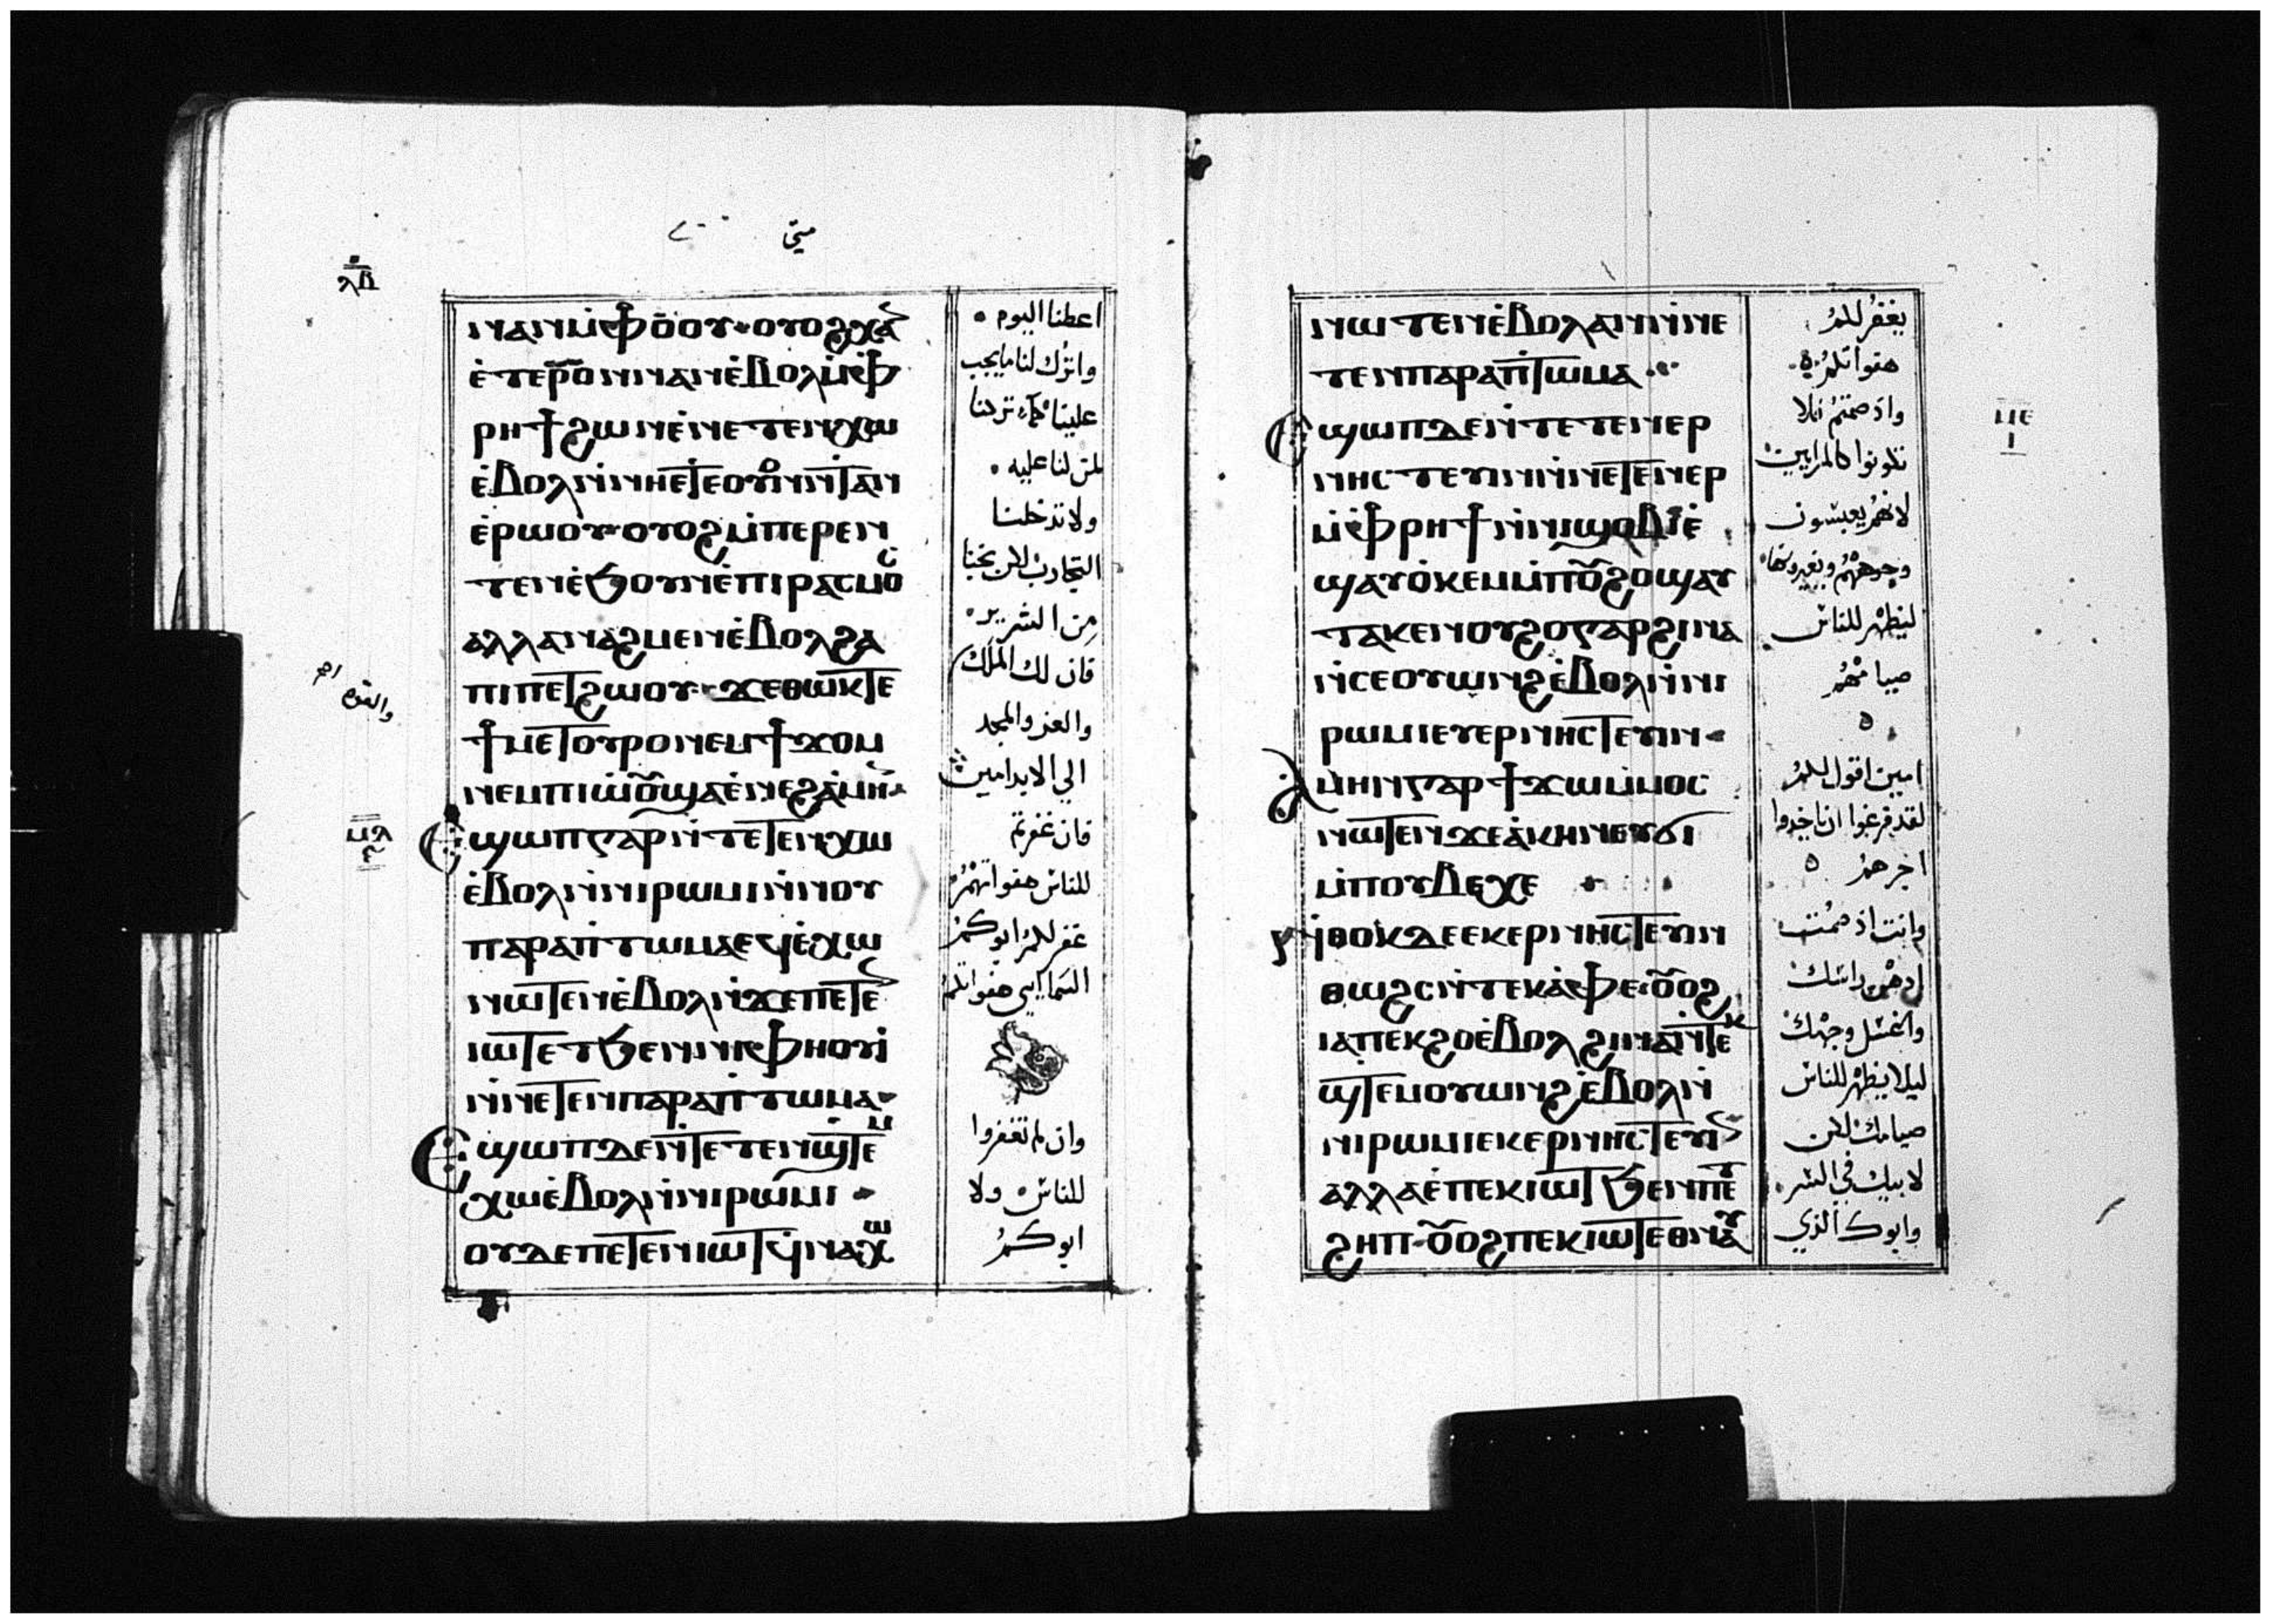 متى
ⲗⲃ
ⲛⲁⲛ ⲙ̀ⲫⲟⲟⲩ ⲟⲩⲟϩ ⲭⲁ
ⲉ̀ⲧⲉⲣⲟⲛ ⲛⲁⲛ ⲉ̀ⲃⲟⲗ ⲙ̀ⲫ
ⲣⲏϯ ϩⲱⲛ ⲉ̀ⲛⲉⲧⲉⲛⲭⲱ
ⲉ̀ⲃⲟⲗ ⲛ̀ⲛⲏⲉⲧⲉ ⲟⲩⲟⲛ ⲛ̀ⲧⲁⲛ
ⲉ̀ⲣⲱⲟⲩ ⲟⲩⲟϩ ⲙ̀ⲡⲉⲣⲉⲛ
ⲧⲉⲛ ⲉ̀ϧⲟⲩⲛ ⲉ̀ⲡⲓⲣⲁⲥⲙⲟ
ⲁⲗⲗⲁ ⲛⲁϩⲙⲉⲛ ⲉ̀ⲃⲟⲗ ϩⲁ
ⲡⲓⲡⲉⲧϩⲱⲟⲩ ϫⲉ ⲑⲱⲕ ⲧⲉ
ϯⲙⲉⲧⲟⲩⲣⲟ ⲛⲉⲙ ϯϫⲟⲙ
ⲛⲉⲙ ⲡⲓⲱ̀ⲟⲩ ϣⲁ ⲉ̀ⲛⲉϩ ⲁ̀ⲙⲏⲛ
ⲉϣⲱⲡ ⲅⲁⲣ ⲛ̀ⲧⲉⲧⲉⲛⲭⲱ
ⲉ̀ⲃⲟⲗ ⲛ̀ⲛⲓⲣⲱⲙⲓ ⲛ̀ⲛⲟⲩ
ⲡⲁⲣⲁⲡⲧⲱⲙⲁ ⲉϥⲉ̀ⲭⲱ
ⲛⲱⲧⲉⲛ ⲉ̀ⲃⲟⲗ ⲛ̀ϫⲉ ⲡⲉⲧⲉⲛ
ⲓⲱⲧ ⲉⲧϧⲉⲛ ⲛⲓⲫⲏⲟⲩⲓ̀
ⲛ̀ⲛⲉⲧⲉⲛⲡⲁⲣⲁⲡⲧⲱⲙⲁ
ⲉϣⲱⲡ ⲇⲉ ⲛ̀ⲧⲉⲧⲉⲛϣⲧⲉⲙ
ⲭⲱ ⲉ̀ⲃⲟⲗ ⲛ̀ⲛⲓⲣⲱⲙⲓ
ⲟⲩⲇⲉ ⲡⲉⲧⲉⲛⲓⲱⲧ ϥ̀ⲛⲁⲭⲱ
ⲙⲇ
ⲋ
اعطنا اليوم
واترك لنا ما يجب
علينا كما نترك
لمن لنا عليه
ولا تدخلنا
التجارب لكن نجنا
من الشرير
فان لك الملك
والقوه
والعز والمجد
الي الابد امين
فان غفرتم
للناس هفواتهم
غفر لكم ابوكم
السماييى هفواتكم
وان لم تغفروا
للناس ولا
ابوكم
ⲛⲱⲧⲉⲛ ⲉ̀ⲃⲟⲗⲁⲛ ⲛ̀ⲛⲉ
ⲧⲉⲛⲡⲁⲣⲁⲡⲧⲱⲙⲁ
ⲉϣⲱⲡ ⲇⲉ ⲛ̀ⲧⲉⲧⲉⲛⲉⲣ
ⲛⲏⲥⲧⲉⲩⲓⲛ ⲛ̀ⲛⲉⲧⲉⲛⲉⲣ
ⲙ̀ⲫⲣⲏϯ ⲛ̀ⲛⲓϣⲟⲃⲓ ⲉ̀
ϣⲁⲩⲟⲕⲉⲙ ⲙ̀ⲡⲟⲩϩⲟ ϣⲁⲩ
ⲧⲁⲕⲉ ⲛⲟⲩϩⲟ ⲅⲁⲣ ϩⲓⲛⲁ
ⲛ̀ⲥⲉⲟⲩⲱⲛϩ ⲉ̀ⲃⲟⲗ ⲛ̀ⲛⲓ
ⲣⲱⲙⲓ ⲉⲩⲉⲣⲛⲏⲥⲧⲉⲩⲓⲛ
ⲁⲙⲏⲛ ⲅⲁⲣ ϯϫⲱ ⲙ̀ⲙⲟⲥ
ⲛⲱⲧⲉⲛ ϫⲉ ⲁ̀ⲕⲏⲛ ⲉⲩϭⲓ
ⲙ̀ⲡⲟⲩⲃⲉⲭⲉ
ⲛ̀ⲑⲟⲕ ⲇⲉ ⲉⲕⲉⲣⲛⲏⲥⲧⲉⲩⲓⲛ
ⲑⲱϩⲥ ⲛ̀ⲧⲉⲕⲁ̀ⲫⲉ ⲟⲩⲟϩ
ⲓⲁ ⲡⲉⲕϩⲟ ⲉ̀ⲃⲟⲗ ϩⲓⲛⲁ ⲛ̀ⲧⲉⲕ
ϣⲧⲉⲙⲟⲩⲱⲛϩ ⲉ̀ⲃⲟⲗ ⲛ̀
ⲛⲓⲣⲱⲙⲓ ⲉⲕⲉⲣⲛⲏⲥⲧⲉⲩⲓⲛ
ⲁⲗⲗⲁ ⲉ̀ⲡⲉⲕⲓⲱⲧ ϧⲉⲛ ⲡⲉⲧ
ϩⲏⲡ ⲟⲩⲟϩ ⲡⲉⲕⲓⲱⲧ ⲉⲑⲛⲁⲩ
يغفر لكم
هفواتكم
واذ صمتم فلا
تكونوا كالمرايين
لانهم يعبسون
وجوههم ويغيرونها
ليظهر للناس
صيامهم
امين اقول لكم
لقد فرغوا ان ياخذوا
اجرهم
وانت اذ صمت
ادهن راسك
واغسل وجهك
ليلا يظهر للناس
صيامك لكن
لابيك في السر
وابوك الذي
ⲙⲉ
ⲓ